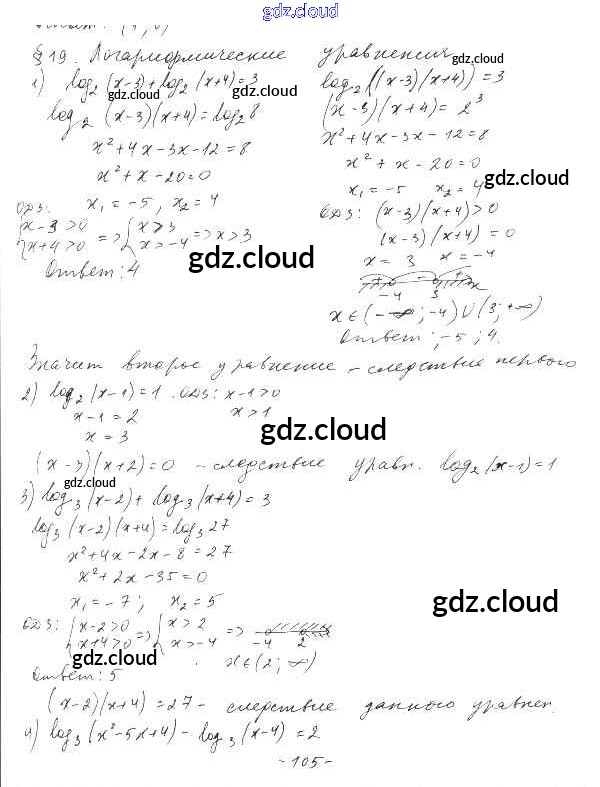 gdz.cloud
Ответ: (4; 6)
§19. Логарифмические уравнения
1) log₂(x-3)+log₂(x+4)=3
gdz.cloud
log₂(x-3)(x+4)=log₂8
x²+4x-3x-12=8
x²+x-20=0
x₁=-5, x₂=4
ОДЗ:
{x-3>0 {x+4>0 => {x>3 {x>-4 => x>3
Ответ: 4
gdz.cloud
log₂((x-3)(x+4))=3
gdz.cloud
(x-3)(x+4)=2³
x²+4x-3x-12=8
x²+x-20=0
x₁=-5 x₂=4
gdz.cloud
ОДЗ: (x-3)(x+4)>0
(x-3)(x+4)=0
x=3 x=-4
gdz.cloud
-4 3 x
x∈(-∞;-4)∪(3;+∞)
Ответ: -5; 4.
Значит второе уравнение - следствие первого
2) log₂(x-1)=1. ОДЗ: x-1>0
x-1=2 x>1
x=3
gdz.cloud
(x-3)(x+2)=0 - следствие уравн. log₂(x-1)=1
gdz.cloud
3) log₃(x-2)+log₃(x+4)=3
log₃(x-2)(x+4)=log₃27
x²+4x-2x-8=27
x²+2x-35=0
gdz.cloud
x₁=-7; x₂=5
gdz.cloud
ОДЗ: {x-2>0 {x+4>0 => {x>2 {x>-4 => -4 2
gdz.cloud
x∈(2;∞)
Ответ: 5
(x-2)(x+4)=27 - следствие данного уравнен.
4) log₃(x²-5x+4)-log₃(x-4)=2
-105-